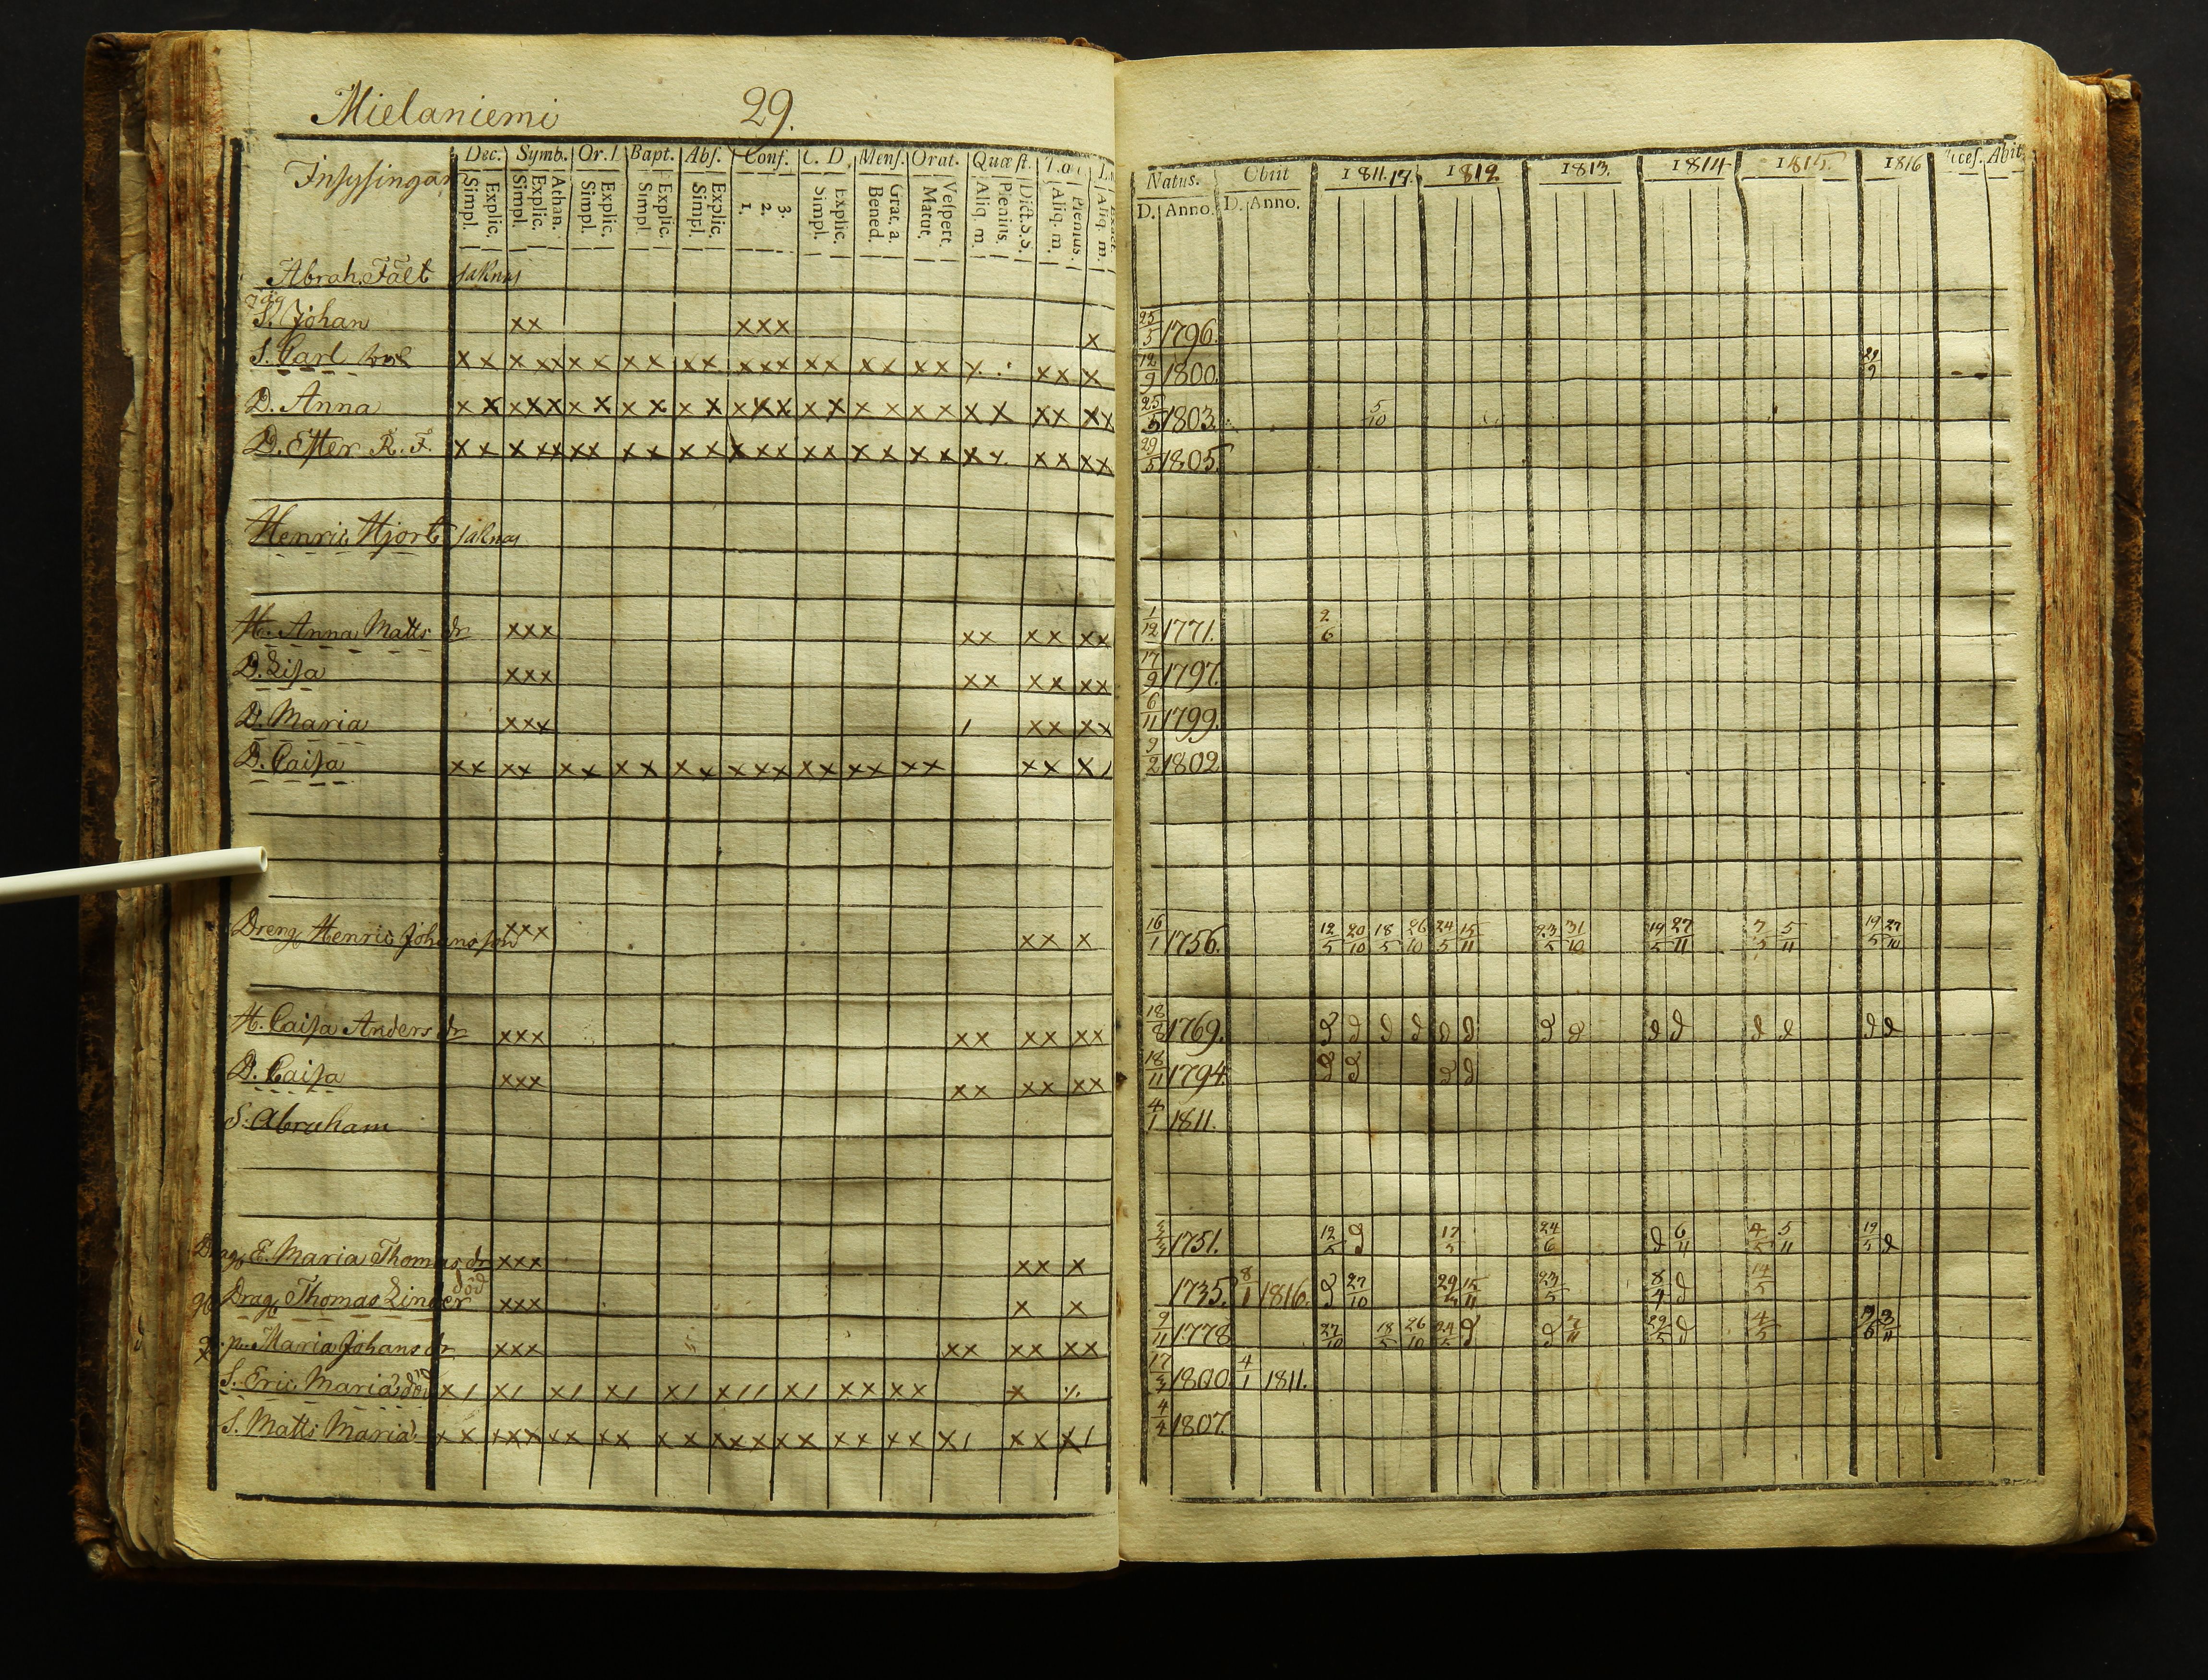 Mielaniemi 29.
Inhysingar Dec. Symb. Or. Bapt. Abs. Conf. C. D. Mens. Orat. Quæst.
Simpl. Explic. Simpl. Explic. Athan. Simpl. Explic. Simpl. Explic. Simpl. Explic. 1. 2. 3. Simpl. Explic. Bened. Grat. a. Matut. Vespert. Aliq. m. Plenius. Dict. S.S. Aliq. m. Plenius. Aliq. m.
Natus. Obiit 1811. 17. 1812 1813. 1814 1815. 1816 Abit
D. Anno. D. Anno.
Abrah. Fält saknas
S. Johan xx xxx x 25/5 1796.
S. Carl xx xxx xx xx xx xxx xx xx xx xx x 12/9 1800. 29/9
D. Anna xx xxx xx xx xx xxx xx xx xx xx xx xx 25/5 1803. 5/10
D. Ester R. F. xx xxx xx xx xx xxx xx xx xx xx xx xx 29/5 1805.
Henric Hjort saknas
H. Anna Matts dr xxx xx xx xx 1/12 1771. 2/6
D. Lisa xxx xx xx xx 17/9 1797.
D. Maria xxx / xx xx 6/11 1799.
D. Caisa xx xx xx xx xx xxx xx xx xx xx x/ 9/2 1802
Dreng Henric Johansson xxx xx x 16/1 1756. 12/5 20/10 18/5 26/10 24/5 15/11 23/5 31/10 19/5 27/11 7/5 5/11 19/5 27/10
H. Caisa Anders dr xxx xx xx xx 18/8 1769. d d d d d d d d d d d d d d
D. Caisa xxx xx xx xx 18/11 1794. d d d d
S. Abraham 4/1 1811.
Drag. E. Maria Thomas dr xxx xx x 1751. 12/5 d 24/6 d 6/11 4/5 5/11 19/5 d
död
Drag. Thomas Linder xxx x x 1735. 8/1 1816. d 27/10 23/5 d 14/5
Maria Johans dr xxx xx xx xx 9/11 1778 27/10 18/5 26/10 24/5 d d 29/5 d 4/5
S. Eric Mariæ död x/ x/ x/ x/ x/ x// x/ xx xx x 1800 4/1 1811.
S. Matts Mariæ xx xxx xx xx xx xxx xx xx xx x/ xx x/ 4/4 1807.